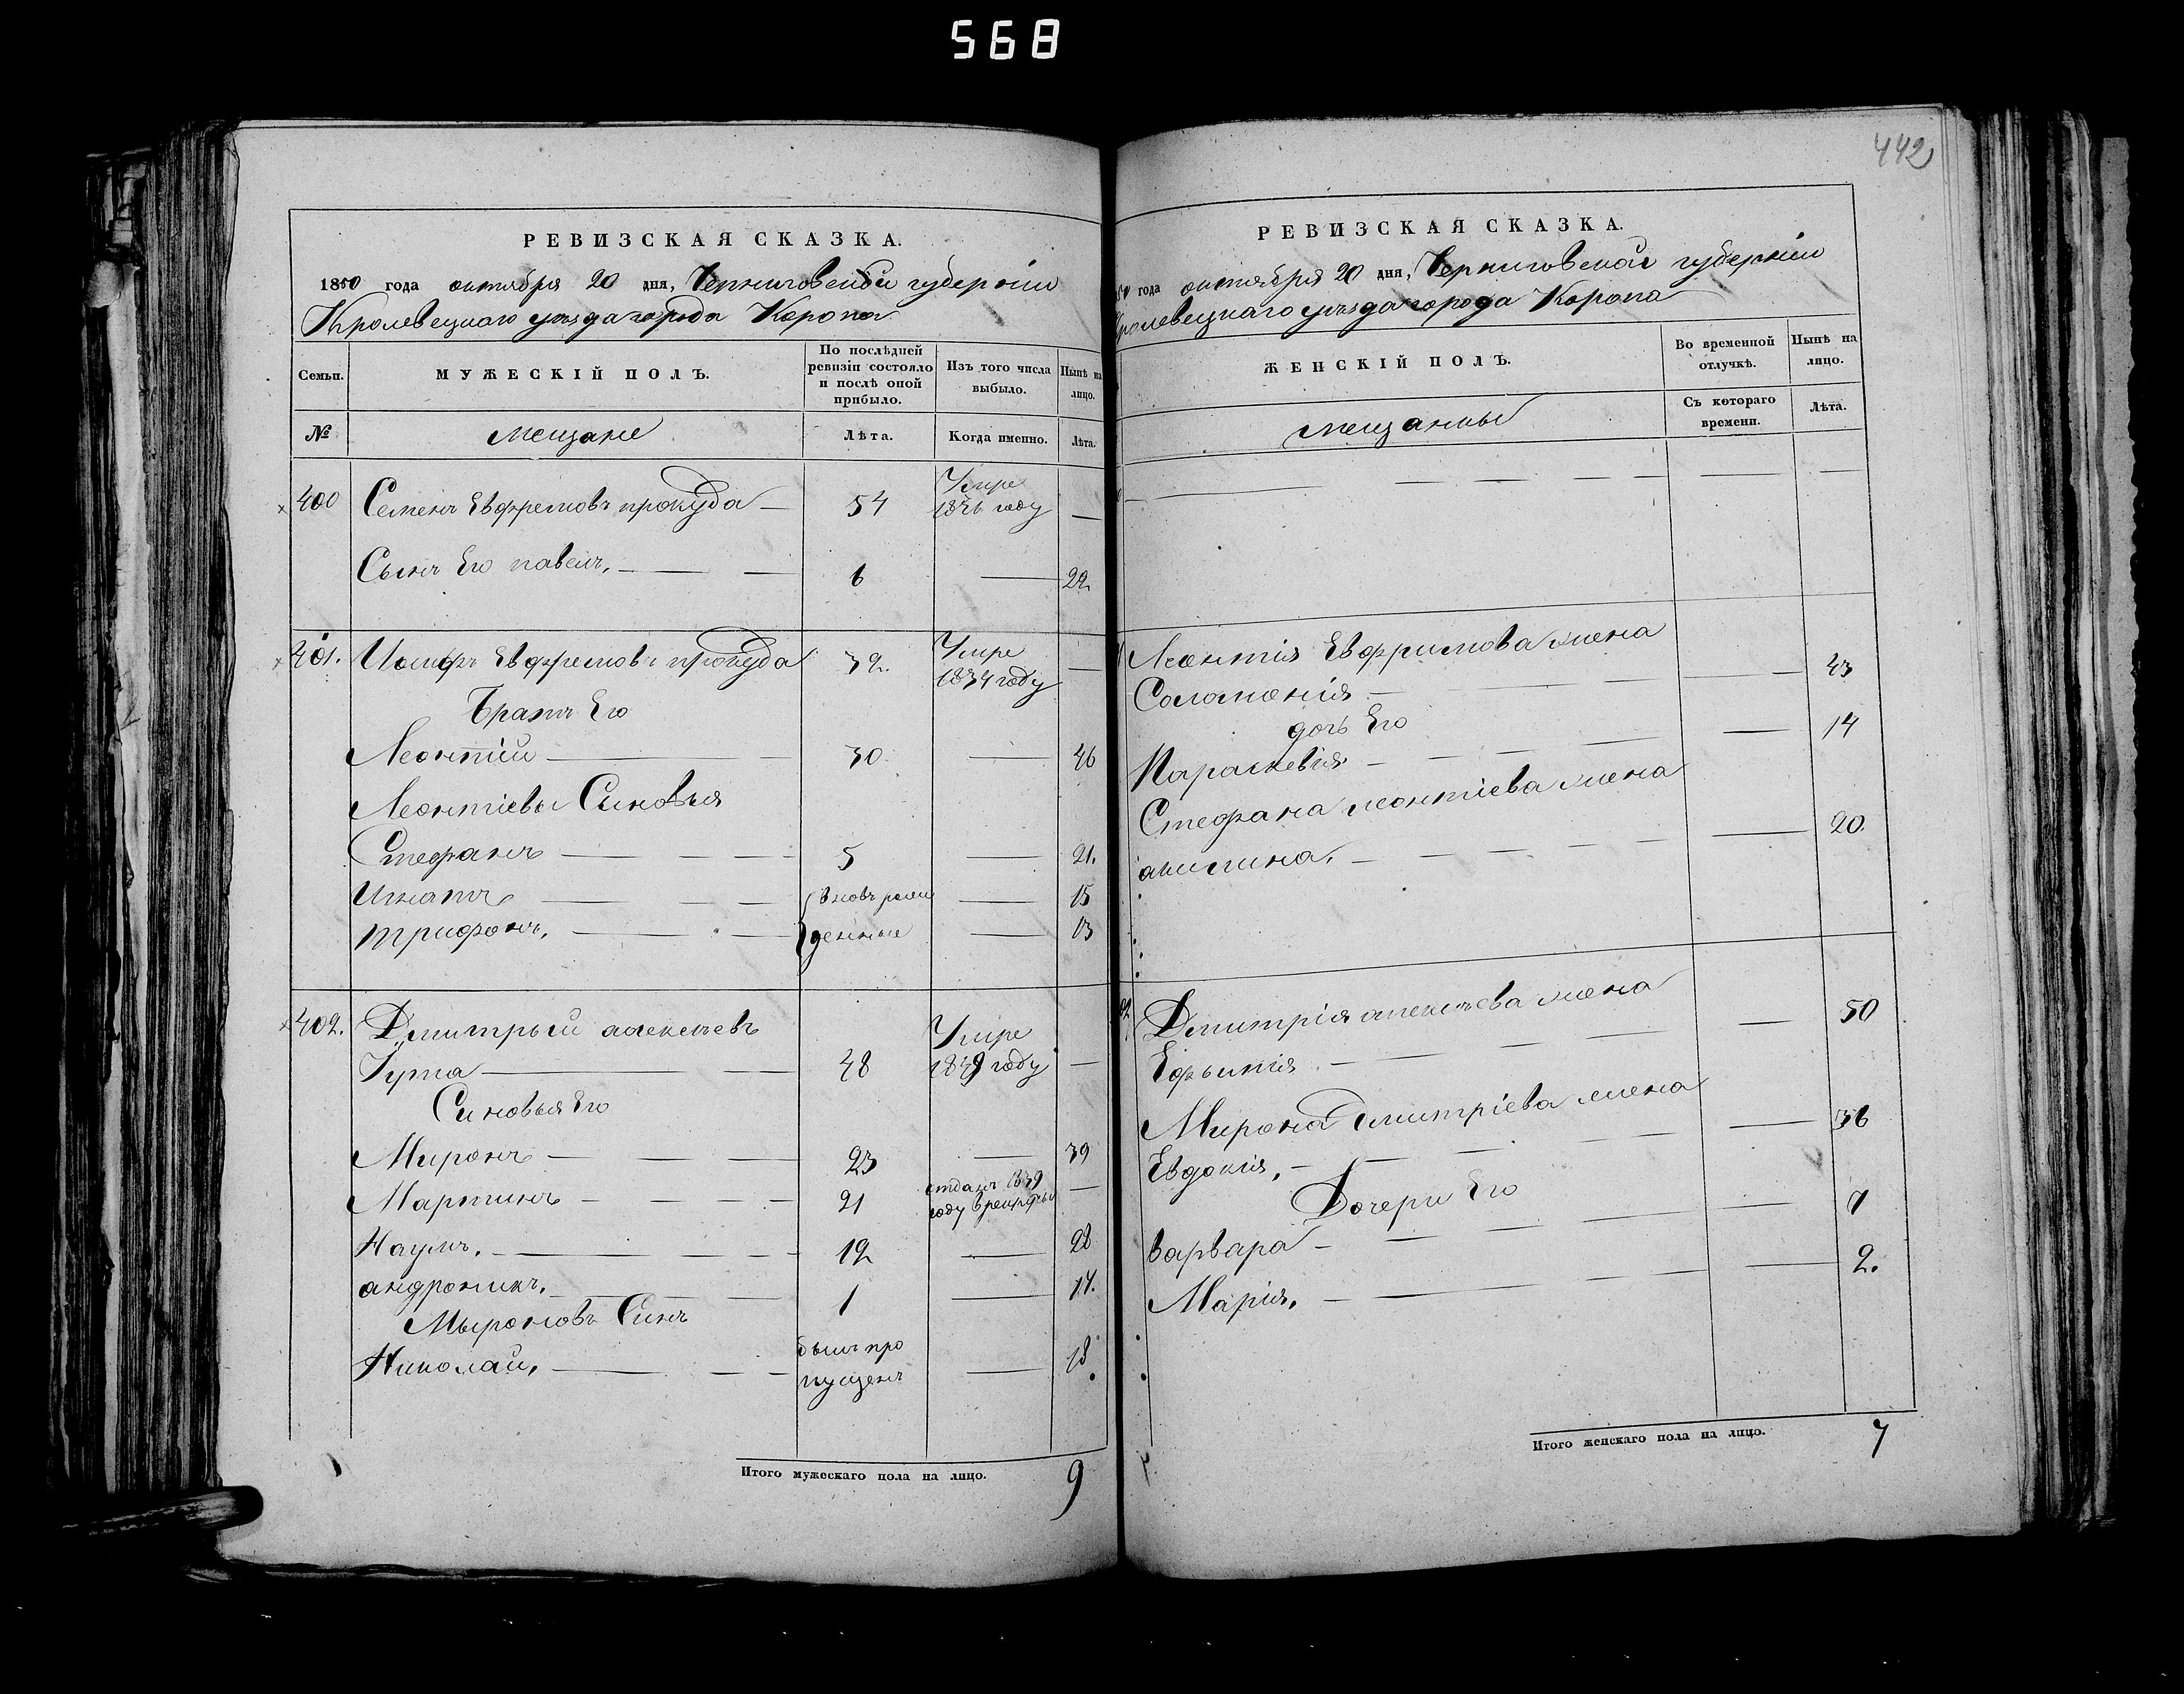 568
442
РЕВИЗСКАЯ СКАЗКА.
1850 года октября 20 дня, Черниговской губерніи
Кролевецкаго уѣзда города Коропа
Семьи.
МУЖЕСКІЙ ПОЛЪ.
По послѣдней ревизіи состояло и послѣ оной прибыло.
Изъ того числа выбыло.
Нынѣ на лицо.
№
Мещане
Лѣта.
Когда именно.
Лѣта.
400 Семенъ Евфремовъ прокуда — 54 Умре 1836 году —
Сынъ Его павелъ. — 6 — 22
401. Иосифъ Евфремовъ прокуда 32. Умре 1834 году —
Братъ Его
Леонтій — 30 — 46
Леонтіевы Сыновья
Стефанъ — 5 — 21.
Игнатъ — вновь рож — 15
трифонъ. — денные — 13
402. Дмитрый алексѣевъ
Гута — 48 Умре 1849 году —
Сыновья Его
Миронъ — 23 — 39
Мартинъ — 21 отданъ 1839 году в рекруты —
Наумъ. — 12 — 28
андроникъ. — 1 — 17.
Мыроновъ Синъ
Николай. — былъ про пущенъ — 18
Итого мужескаго пола на лицо. 9
РЕВИЗСКАЯ СКАЗКА.
50 года октября 20 дня, Черниговской губерніи
Кролевецкаго уѣзда города Коропа
ЖЕНСКІЙ ПОЛЪ.
Во временной отлучкѣ.
Нынѣ на лицо.
мещанкы
Съ котораго времени.
Лѣта.
Леонтія Евфримова жена
Соломонія — 43
дочь Его
Параскевія — 14
Стефана леонтіева жена
акилина. — 20.
Дмитрія алексѣева жена
Ефимія — 50
Мирона Дмитріева жена
Евдокія, — 36
Дочери Его
варвара — 7
Марія, — 2.
Итого женскаго пола на лицо. 7